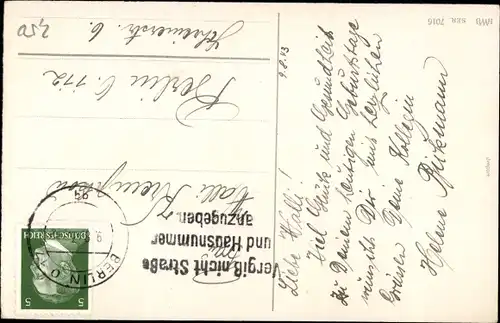 9.8.43
Liebe Walli!
Viel Glück und Gesundheit
zu Deinem heutigen Geburtstage
wünscht Dir mit herzlichen
Grüssen Deine Kollegin
Helene
Walli
Berlin O.112
6.
BERLIN O 17
Vergiß nicht Straße
und Hausnummer
anzugeben
DEUTSCHES REICH
5 5
2,50
SER. 7016